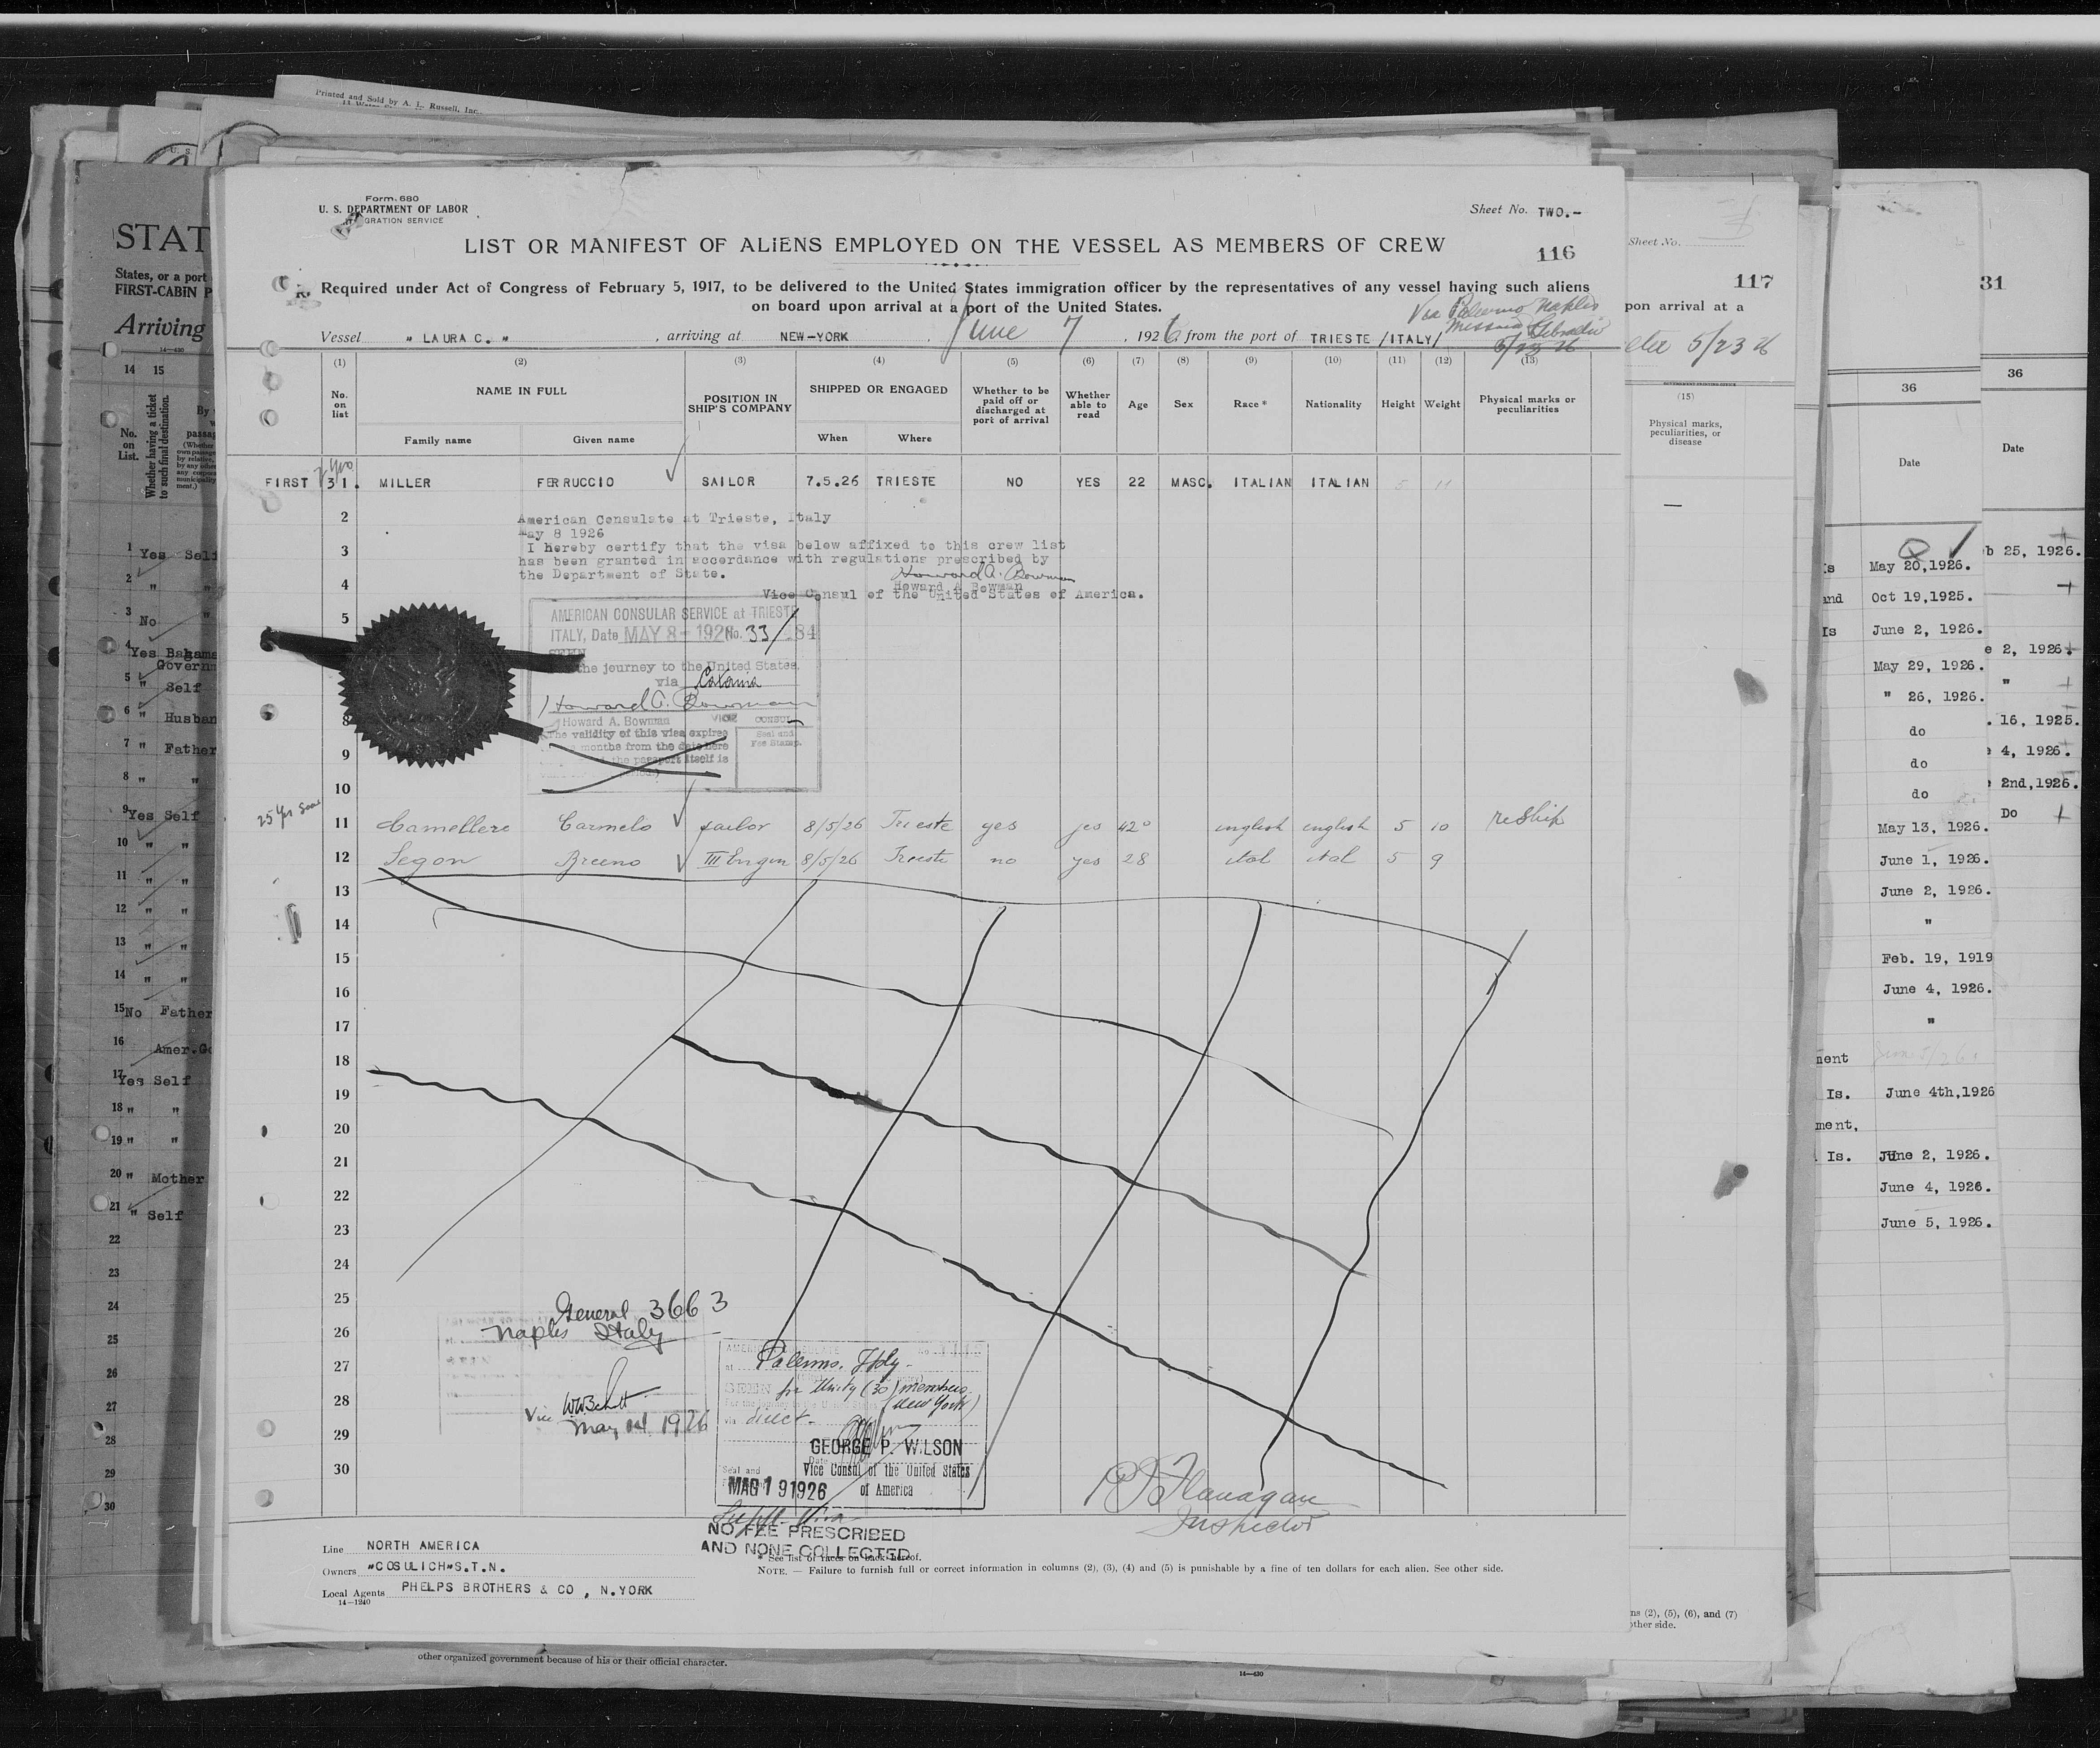 Printed and Sold by A. L. Russell, Inc.
Form 680
U. S. DEPARTMENT OF LABOR
GRATION SERVICE
Sheet No. TWO.-
LIST OR MANIFEST OF ALIENS EMPLOYED ON THE VESSEL AS MEMBERS OF CREW
116
Required under Act of Congress of February 5, 1917, to be delivered to the United States immigration officer by the representatives of any vessel having such aliens
on board upon arrival at a port of the United States.
Via Palermo Naples
Messina
Vessel " LAURA C. " , arriving at NEW-YORK , June 7 , 1926 from the port of TRIESTE /ITALY/
5/23 26
(1) (2) (3) (4) (5) (6) (7) (8) (9) (10) (11) (12) (13)
No. on list
NAME IN FULL
Family name
Given name
POSITION IN SHIP'S COMPANY
SHIPPED OR ENGAGED
When
Where
Whether to be paid off or discharged at port of arrival
Whether able to read
Age
Sex
Race *
Nationality
Height
Weight
Physical marks or peculiarities
FIRST 31. MILLER FERRUCCIO SAILOR 7.5.26 TRIESTE NO YES 22 MASC. ITALIAN ITALIAN 5 11
2
American Consulate at Trieste, Italy
May 8 1926
3
I hereby certify that the visa below affixed to this crew list
has been granted in accordance with regulations prescribed by
the Department of State.
4
Howard A. Bowman
Howard A Bowman
Vice Consul of the United States of America.
5
AMERICAN CONSULAR SERVICE at TRIESTE
ITALY, Date MAY 8- 192 No. 33/ 84
SEEN
the journey to the United States,
via Catania
Howard A. Bowman
8
Howard A. Bowman VICE CONSUL
The validity of this visa expires
months from the date here
the passport itself is
Seal and
Fee Stamp.
9
10
11 Camellere Carmelo sailor 8/5/26 Trieste yes yes 42 english english 5 10 reship
12 Segon Bruno III Engin 8/5/26 Trieste no yes 28 ital ital 5 9
13
14
15
16
17
18
19
20
21
22
23
24
25
26
27
28
29
30
General 3663
Naples Italy
Vice
May 14 1926
Palermo, Italy.
SEEN for thirty (30) members
(New York)
via direct.
GEORGE P. WILSON
Vice Consul of the United States
of America
Seal and
MAG 19 1926
Suppl. Visa
NO FEE PRESCRIBED
AND NONE COLLECTED
Flanagan
Inspector
Line NORTH AMERICA
Owners "COSULICH"S.T.N.
Local Agents PHELPS BROTHERS & CO , N.YORK
14—1240
* See list of races on back hereof.
NOTE. — Failure to furnish full or correct information in columns (2), (3), (4) and (5) is punishable by a fine of ten dollars for each alien. See other side.
STAT
States, or a port
FIRST-CABIN P
Arriving
14—430
14 15
No. on List.
Whether having a ticket to such final destination.
1 Yes Self
2 " "
3 No "
4 Yes Bahama
Governm
5 " Self
6 " Husban
7 " Father
8 " "
9 Yes Self
10 " "
11 " "
12 " "
13 " "
14 " "
15 No Father
16 Amer.Go
17 Yes Self
18 " "
19 " "
20 " Mother
21 " Self
22
23
24
25
26
27
28
29
30
other organized government because of his or their official character.
14—430
Sheet No.
117
pon arrival at a
5/23 26
(15)
Physical marks, peculiarities, or disease
ns (2), (5), (6), and (7)
other side.
36
Date
May 20,1926.
Oct 19,1925.
June 2, 1926.
May 29, 1926.
" 26, 1926.
do
do
do
May 13, 1926.
June 1, 1926.
June 2, 1926.
"
Feb. 19, 1919
June 4, 1926.
"
ment
Is. June 4th,1926
ment,
Is. June 2, 1926.
June 4, 1926.
June 5, 1926.
31
36
Date
b 25, 1926.
e 2, 1926.
"
. 16, 1925.
e 4, 1926.
e 2nd,1926.
Do